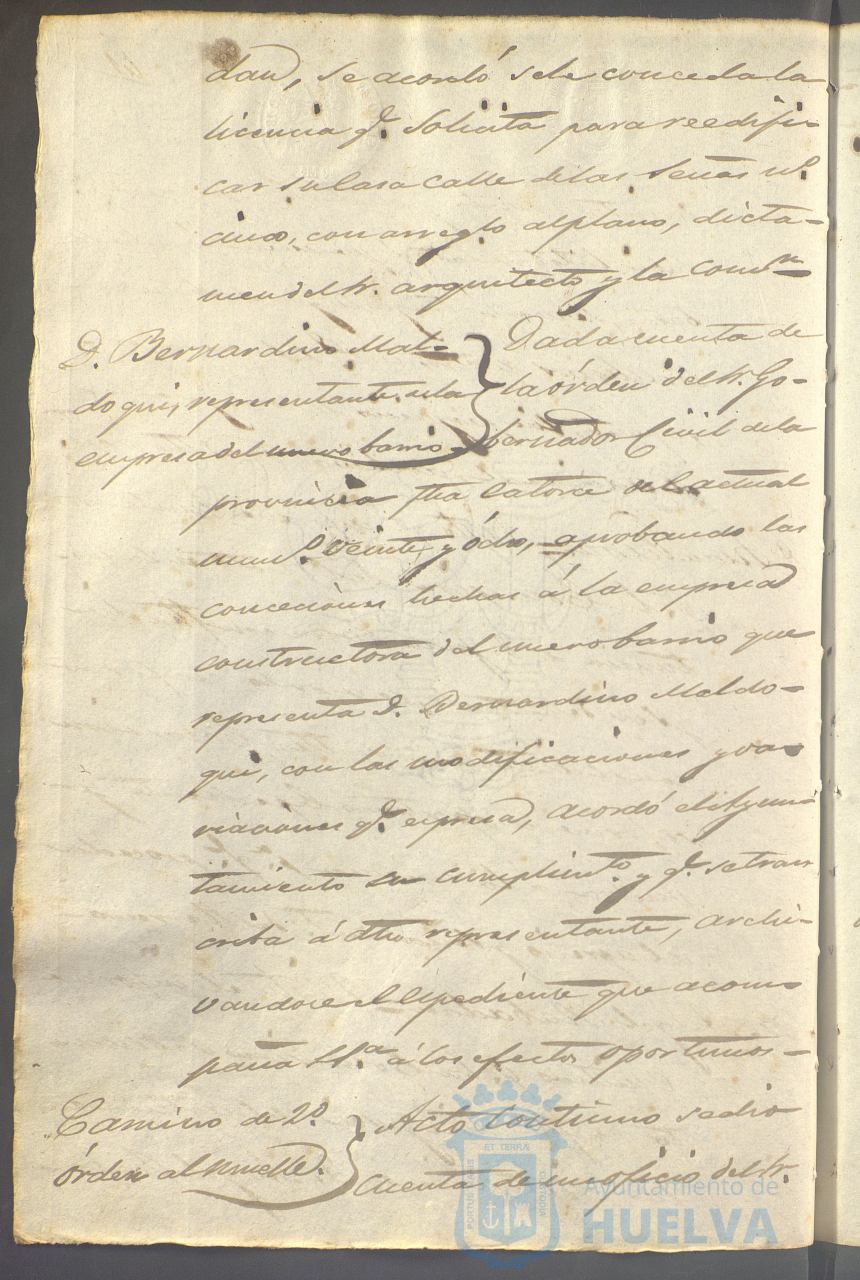 dan, se acordó se le conceda la
licencia q.e solicita para reedifi-
car su casa calle de las Señas n.o
cinco, con arreglo al plano, dicta-
men del Sr. arquitecto y la Com.on
D. Bernardino Mal-
doqui, representante de la
empresa del nuevo barrio
Dada cuenta de
la órden del Sr. Go-
bernador Civil de la
provincia fha catorce del actual
num.o veinte y ócho, aprobando las
conceciones hechas á la empresa
constructora del nuevo barrio que
representa D. Bernardino Maldo-
qui, con las modificaciones y va-
riaciones q.e espresa, acordó el Ayun-
tamiento su cumplim.to y q.e se trans
criba á dho representante, archi-
vandose el espediente que acom-
paña á los efectos oportunos-
Camino de 2.o
órden al muelle.
Acto continuo se dio
cuenta de un oficio del Sr.
ET TERRAE
PORTUS MARIS
CUSTODIA
Ayuntamiento de
HUELVA